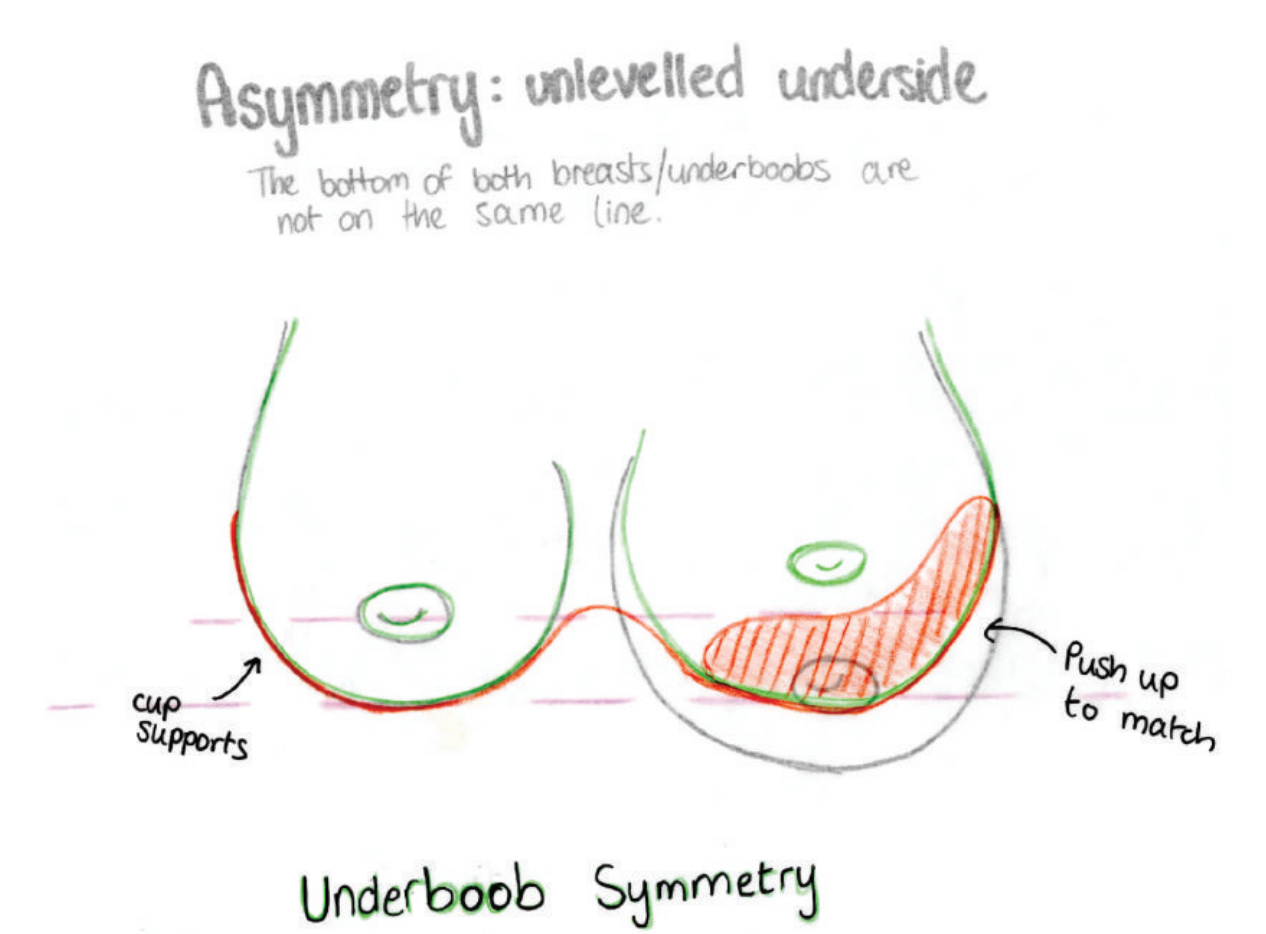 Asymmetry: unlevelled underside
The bottom of both breasts/underboobs are
not on the same line.
cup
supports
Push up
to match
Underboob Symmetry